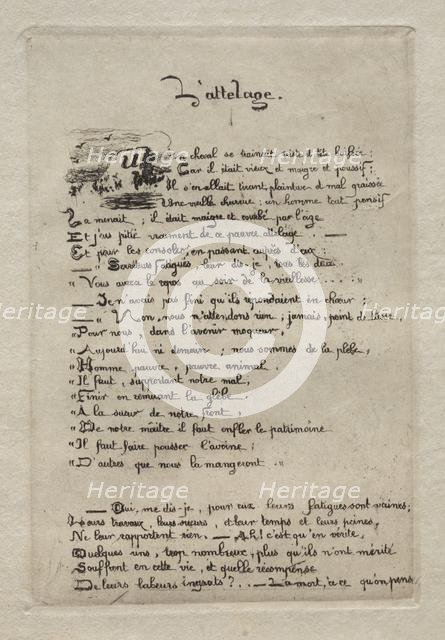 L'attelage.
Un cheval se traînait triste et tête baissée ;
Car il était vieux et maigre et poussif ;
Il s'en allait tirant, plaintive et mal graissée
Une vieille charrue ; un homme tout pensif
La menait ; il était maigre et courbé par l'âge
Et j'eus pitié vraiment de ce pauvre attelage. —
Et pour les consoler, en passant auprès d'eux :
— "Serviteurs fatigués, leur dis-je, tous les deux
"Vous aurez le repos au soir de la vieillesse . . . "
— Je n'avais pas fini qu'ils répondaient en chœur :
— "Non, nous n'attendons rien ; jamais, point de
"Pour nous, dans l'avenir moqueur,
"Aujourd'hui ni demain ; nous sommes de la plèbe,
"Homme pauvre, pauvre animal.
"Il faut, supportant notre mal,
"Finir en remuant la glèbe.
"A la sueur de notre front,
"De notre maître il faut enfler le patrimoine
"Il faut faire pousser l'avoine ;
"D'autres que nous la mangeront ."
— Oui, me dis-je, pour eux leurs fatigues sont vaines ;
Leurs travaux, leurs sueurs, et leur temps et leurs peines,
Ne leur rapportent rien. — Ah ! c'est qu'en vérité,
Quelques uns, trop nombreux, plus qu'ils n'ont mérité
Souffrent en cette vie, et quelle récompense
De leurs labeurs ingrats ? . . — La mort, à ce qu'on pense
Heritage
Heritage
Heritage
Heritage
Heritage
Heritage
Heritage
Heritage